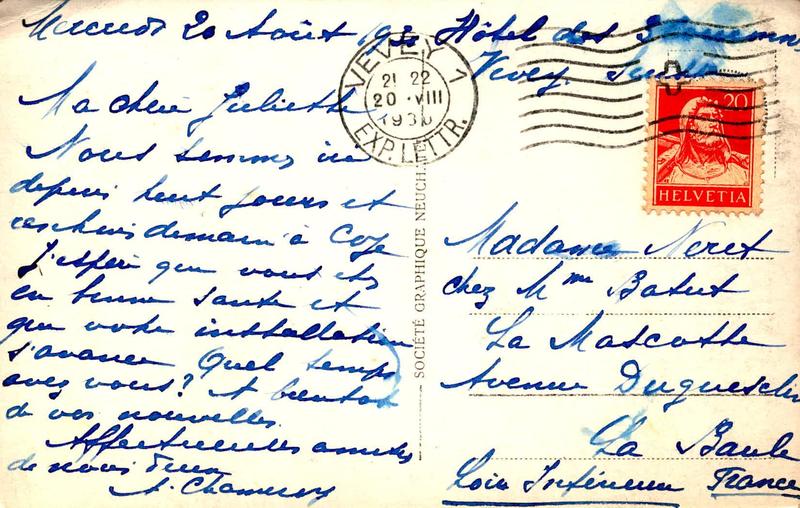 Mercredi 20 Août 193 Hôtel des 3
Vevey Suisse
Ma chère Juliette
Nous sommes ici
depuis huit jours et
demain à
J'espère que vous êtes
en bonne santé et
que votre installation
s'avance Quel temps
avez vous? A bientôt
de vos nouvelles.
Affectueuses amitiés
de nous deux
A. Chameroy
VEVEY 1
21 22
20 VIII
1930
EXP. LETTR.
SOCIÉTÉ GRAPHIQUE NEUCH
20
HELVETIA
Madame Neret
chez Mme Batut
La Mascotte
Avenue Duguesclin
La Baule
Loire Inférieure France